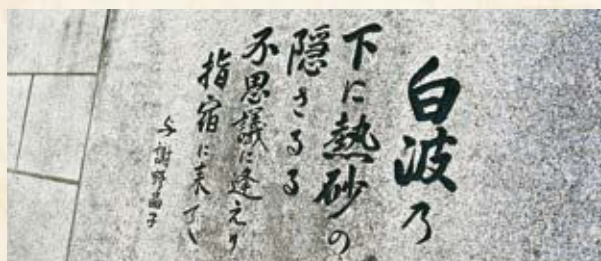 白波乃
下に熱砂の
隠さるる
不思議に逢えり
指宿に来て
与謝野晶子